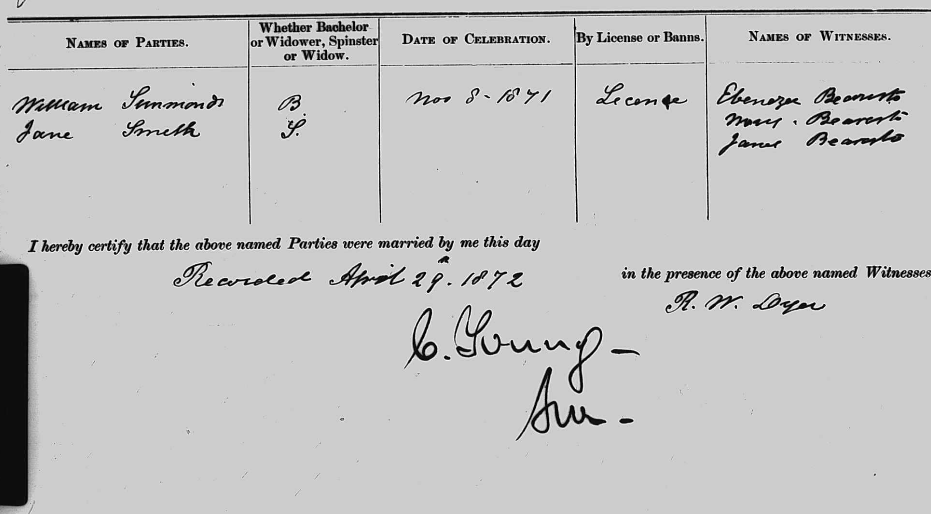 NAMES OF PARTIES. Whether Bachelor or Widower, Spinster or Widow. DATE OF CELEBRATION. By License or Banns. NAMES OF WITNESSES.
William Simmonds B Nov 8 - 1871 License Ebenezer Bearisto
Jane Smith S. Mary. Bearisto
Bearisto
I hereby certify that the above named Parties were married by me this day
Recorded April 29. 1872 in the presence of the above named Witnesses
R. W. Dyer
C. Young -